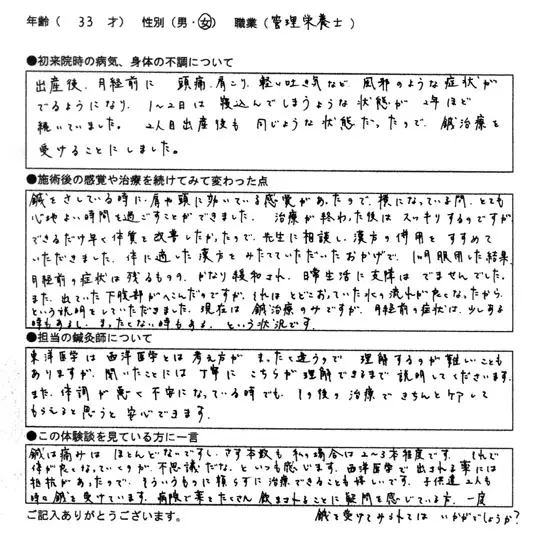 年齢（ 33 才） 性別（男・女） 職業（管理栄養士）
●初来院時の病気、身体の不調について
出産後、月経前に 頭痛、肩こり、軽い吐き気など、風邪のような症状が
でるようになり、1〜2日は 寝込んでしまうような 状態が 2年ほど
続いていました。 2人目出産後も 同じような 状態だったので、鍼治療を
受けることにしました。
●施術後の感覚や治療を続けてみて変わった点
鍼をさしている時に、肩や頭に効いている感覚があったので、横になっている間、とても
心地よい時間を過ごすことができました。 治療が終わった後は スッキリするのですが
できるだけ早く体質を改善したかったので、先生に相談し、漢方の併用を すすめて
いただきました。体に適した漢方を みたてていただいたおかげで、1ヶ月服用した結果、
月経前の症状は残るものの、かなり緩和され、日常生活に支障は でませんでした。
また、出ていた下腹部がへこんだのですが、それは とどこおっていた水の流れが良くなったから、
という説明をしていただきました。現在は 鍼治療のみですが、月経前の症状は、少しある
時もあるし、まったくない時もある、という状況です。
●担当の鍼灸師について
東洋医学は西洋医学とは考え方が まったく違うので 理解するのが難しいことも
ありますが、聞いたことには 丁寧に こちらが理解できるまで 説明してくださいます。
また、体調が悪く不安になっている時でも、その後の治療できちんとケアして
もらえると思うと 安心できます。
●この体験談を見ている方に一言
鍼は痛みは ほとんどないですし、さす本数も 私の場合は 2〜3本程度です。それで
体が良くなっていくのが、不思議だな、といつも感じます。西洋医学で出される薬には
抵抗があったので、そういうものに頼らずに治療できることも嬉しいです。子供達2人も
時々鍼を受けています。病院で薬をたくさん 飲まされることに疑問を感じている方、一度
ご記入ありがとうございます。 鍼を受けてみられては いかがでしょうか？